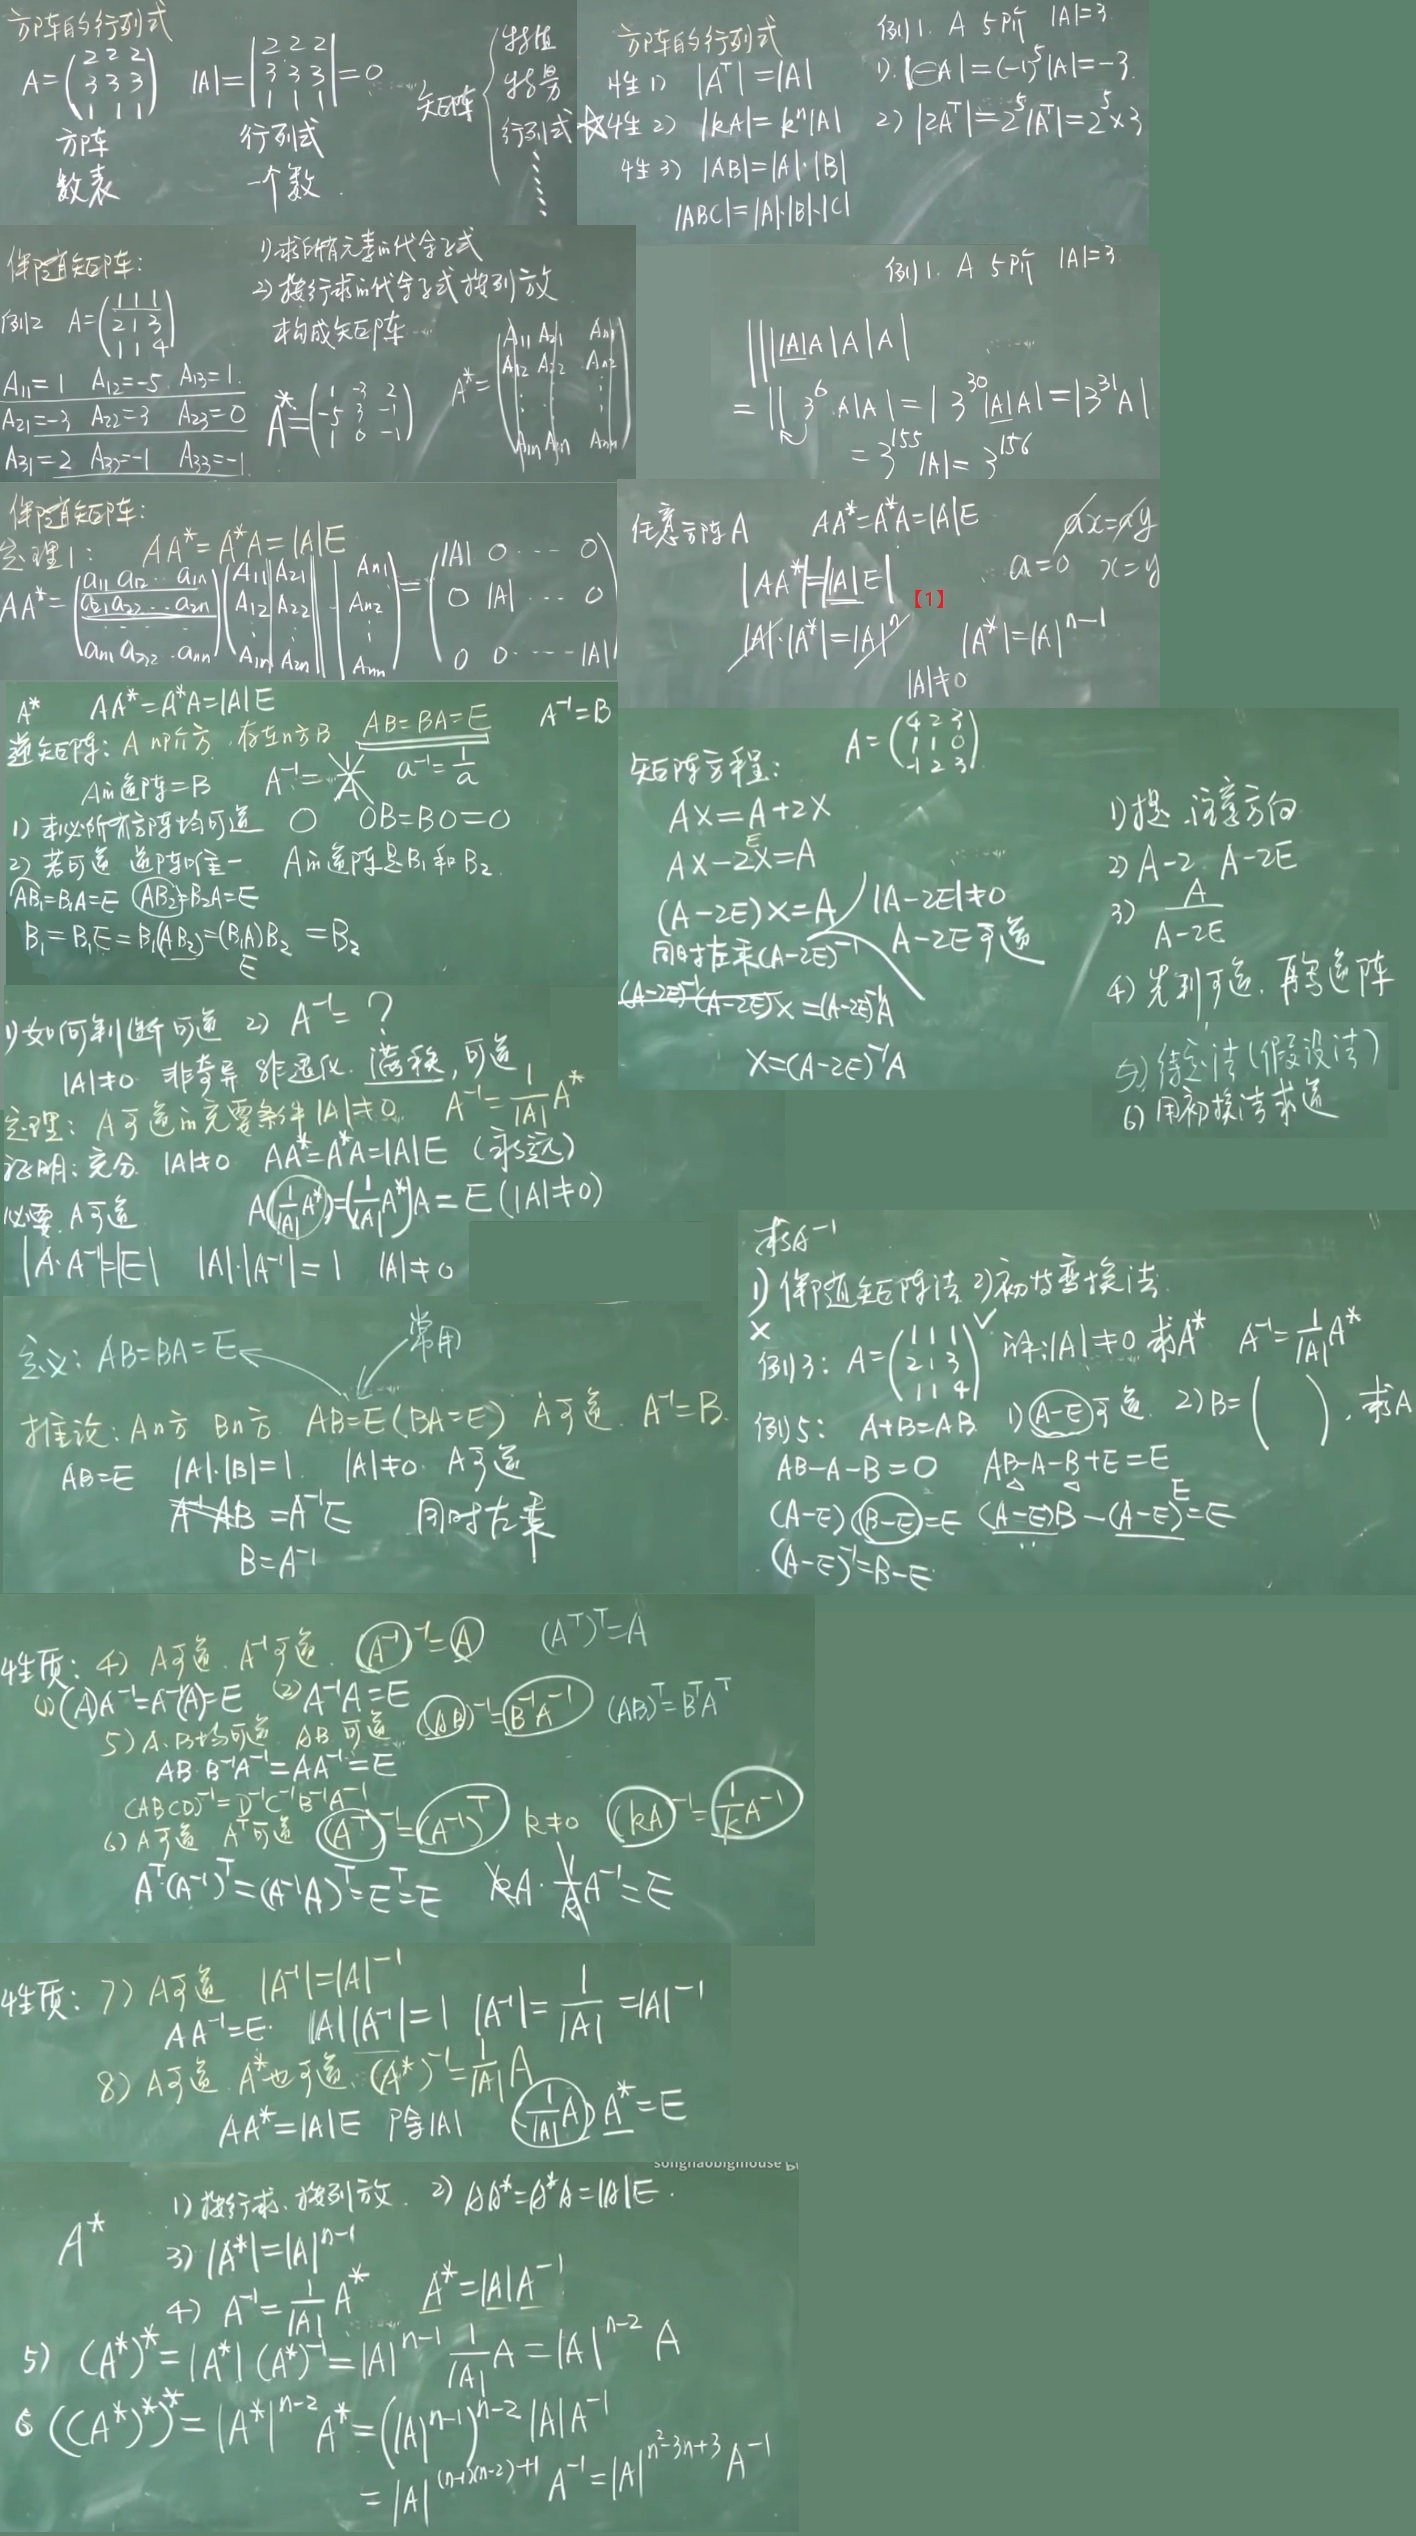 方阵的行列式
A=(2 2 2
3 3 3
1 1 1)
|A|=|2 2 2
3 3 3
1 1 1|=0
方阵 行列式
数表 一个数
矩阵 { 特值
特景
行列式
方阵的行列式
性1) |Aᵀ|=|A|
☆性2) |kA|=kⁿ|A|
性3) |AB|=|A|·|B|
|ABC|=|A|·|B|·|C|
例1. A 5阶 |A|=3
1). |-A|=(-1)⁵|A|=-3.
2) |2Aᵀ|=2⁵|Aᵀ|=2⁵×3
伴随矩阵:
1) 求所有元素的代余子式
2) 按行求的代余子式按列放
构成矩阵
例2 A=(1 1 1
2 1 3
1 1 4)
A₁₁=1 A₁₂=-5 A₁₃=1.
A₂₁=-3 A₂₂=3 A₂₃=0
A₃₁=2 A₃₂=-1 A₃₃=-1
A*=(1 -3 2
-5 3 -1
1 0 -1)
A*=(A₁₁ A₂₁ Aₙ₁
A₁₂ A₂₂ Aₙ₂
⋮ ⋮ ⋮
A₁ₙ A₂ₙ Aₙₙ)
例1. A 5阶 |A|=3
||||A|A|A|A|
=||3⁶·A|A|=|3³⁰|A|A|=|3³¹A|
=3¹⁵⁵|A|=3¹⁵⁶
伴随矩阵:
定理1: AA*=A*A=|A|E
AA*=(a₁₁ a₁₂ ... a₁ₙ
a₂₁ a₂₂ ... a₂ₙ
aₙ₁ aₙ₂ ... aₙₙ)(A₁₁ A₂₁ ... Aₙ₁
A₁₂ A₂₂ ... Aₙ₂
⋮ ⋮ ⋮
A₁ₙ A₂ₙ Aₙₙ)=(|A| 0 ... 0
0 |A| ... 0
0 0 ... |A|)
任意方阵A AA*=A*A=|A|E ax=ay
a=0 x=y
|AA*|=||A|E| 【1】
|A|·|A*|=|A|ⁿ |A*|=|A|ⁿ⁻¹
|A|≠0
A* AA*=A*A=|A|E
逆矩阵: A n阶方.存在n方B AB=BA=E A⁻¹=B
A的逆阵=B A⁻¹=1/A a⁻¹=1/a
1) 未必所有方阵均可逆 O OB=BO=O
2) 若可逆 逆阵唯一 A的逆阵是B₁和B₂.
AB₁=B₁A=E AB₂=B₂A=E
B₁=B₁E=B₁(AB₂)=(B₁A)B₂=B₂
E
矩阵方程: A=(4 2 3
1 1 0
-1 2 3)
AX=A+2X
E
AX-2X=A
(A-2E)X=A |A-2E|≠0
A-2E可逆
同时左乘(A-2E)⁻¹
(A-2E)⁻¹(A-2E)X=(A-2E)⁻¹A
X=(A-2E)⁻¹A
1) 提.注意方向
2) A-2. A-2E
3) A/(A-2E)
4) 先判可逆.再写逆阵
5) 待定法(假设法)
6) 用初换法求逆
1) 如何判断可逆 2) A⁻¹=?
|A|≠0 非奇异 非退化. 满秩, 可逆
定理: A可逆的充要条件|A|≠0. A⁻¹=1/|A| A*
证明: 充分 |A|≠0 AA*=A*A=|A|E (永远)
A(1/|A| A*)=(1/|A| A*)A=E (|A|≠0)
必要. A可逆
|A·A⁻¹|=|E| |A|·|A⁻¹|=1 |A|≠0
定义: AB=BA=E 常用
推论: A n方 B n方 AB=E(BA=E) A可逆. A⁻¹=B.
AB=E |A|·|B|=1. |A|≠0. A可逆
A⁻¹AB=A⁻¹E 同时左乘
B=A⁻¹
求A⁻¹
1) 伴随矩阵法 2) 初等变换法.
× ✓
例3: A=(1 1 1
2 1 3
1 1 4) 解:|A|≠0 求A* A⁻¹=1/|A| A*
例5: A+B=AB. 1) A-E可逆. 2) B=( ), 求A
AB-A-B=0 AB-A-B+E=E
(A-E)(B-E)=E (A-E)B-(A-E)E=E
(A-E)⁻¹=B-E
性质: 4) A可逆. A⁻¹可逆. (A⁻¹)⁻¹=A (Aᵀ)ᵀ=A
(1) (A)A⁻¹=A⁻¹(A)=E (2) A⁻¹A=E
5) A.B均可逆 AB可逆. (AB)⁻¹=B⁻¹A⁻¹ (AB)ᵀ=BᵀAᵀ
AB·B⁻¹A⁻¹=AA⁻¹=E
(ABCD)⁻¹=D⁻¹C⁻¹B⁻¹A⁻¹
6) A可逆 Aᵀ可逆 (Aᵀ)⁻¹=(A⁻¹)ᵀ k≠0 (kA)⁻¹=1/k A⁻¹
Aᵀ·(A⁻¹)ᵀ=(A⁻¹A)ᵀ=Eᵀ=E kA·1/k A⁻¹=E
性质: 7) A可逆 |A⁻¹|=|A|⁻¹
AA⁻¹=E. |A||A⁻¹|=1 |A⁻¹|=1/|A|=|A|⁻¹
8) A可逆.A*也可逆. (A*)⁻¹=1/|A| A
AA*=|A|E 除|A| (1/|A| A)A*=E
songhaobigmouse
A* 1) 按行求.按列放. 2) AA*=A*A=|A|E.
3) |A*|=|A|ⁿ⁻¹
4) A⁻¹=1/|A| A* A*=|A|A⁻¹
5) (A*)*=|A*|(A*)⁻¹=|A|ⁿ⁻¹ 1/|A| A=|A|ⁿ⁻² A
6 ((A*)*)*=|A*|ⁿ⁻²A*=(|A|ⁿ⁻¹)ⁿ⁻²|A|A⁻¹
=|A|⁽ⁿ⁻¹⁾⁽ⁿ⁻²⁾⁺¹A⁻¹=|A|^(n²-3n+3)A⁻¹